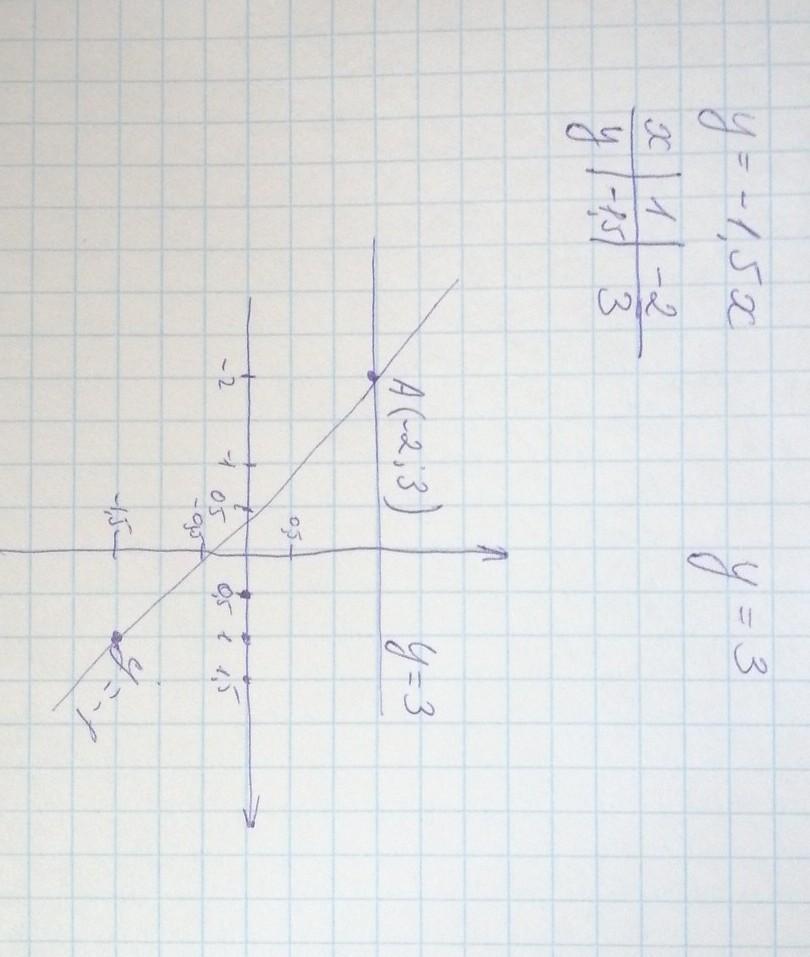 y = -1,5x
y = 3
x | 1 | -2
y | -1,5 | 3
A(-2; 3)
y=3
0,5
-2
-1
0,5
0,5
1
1,5
-0,5
-1,5
y=-1